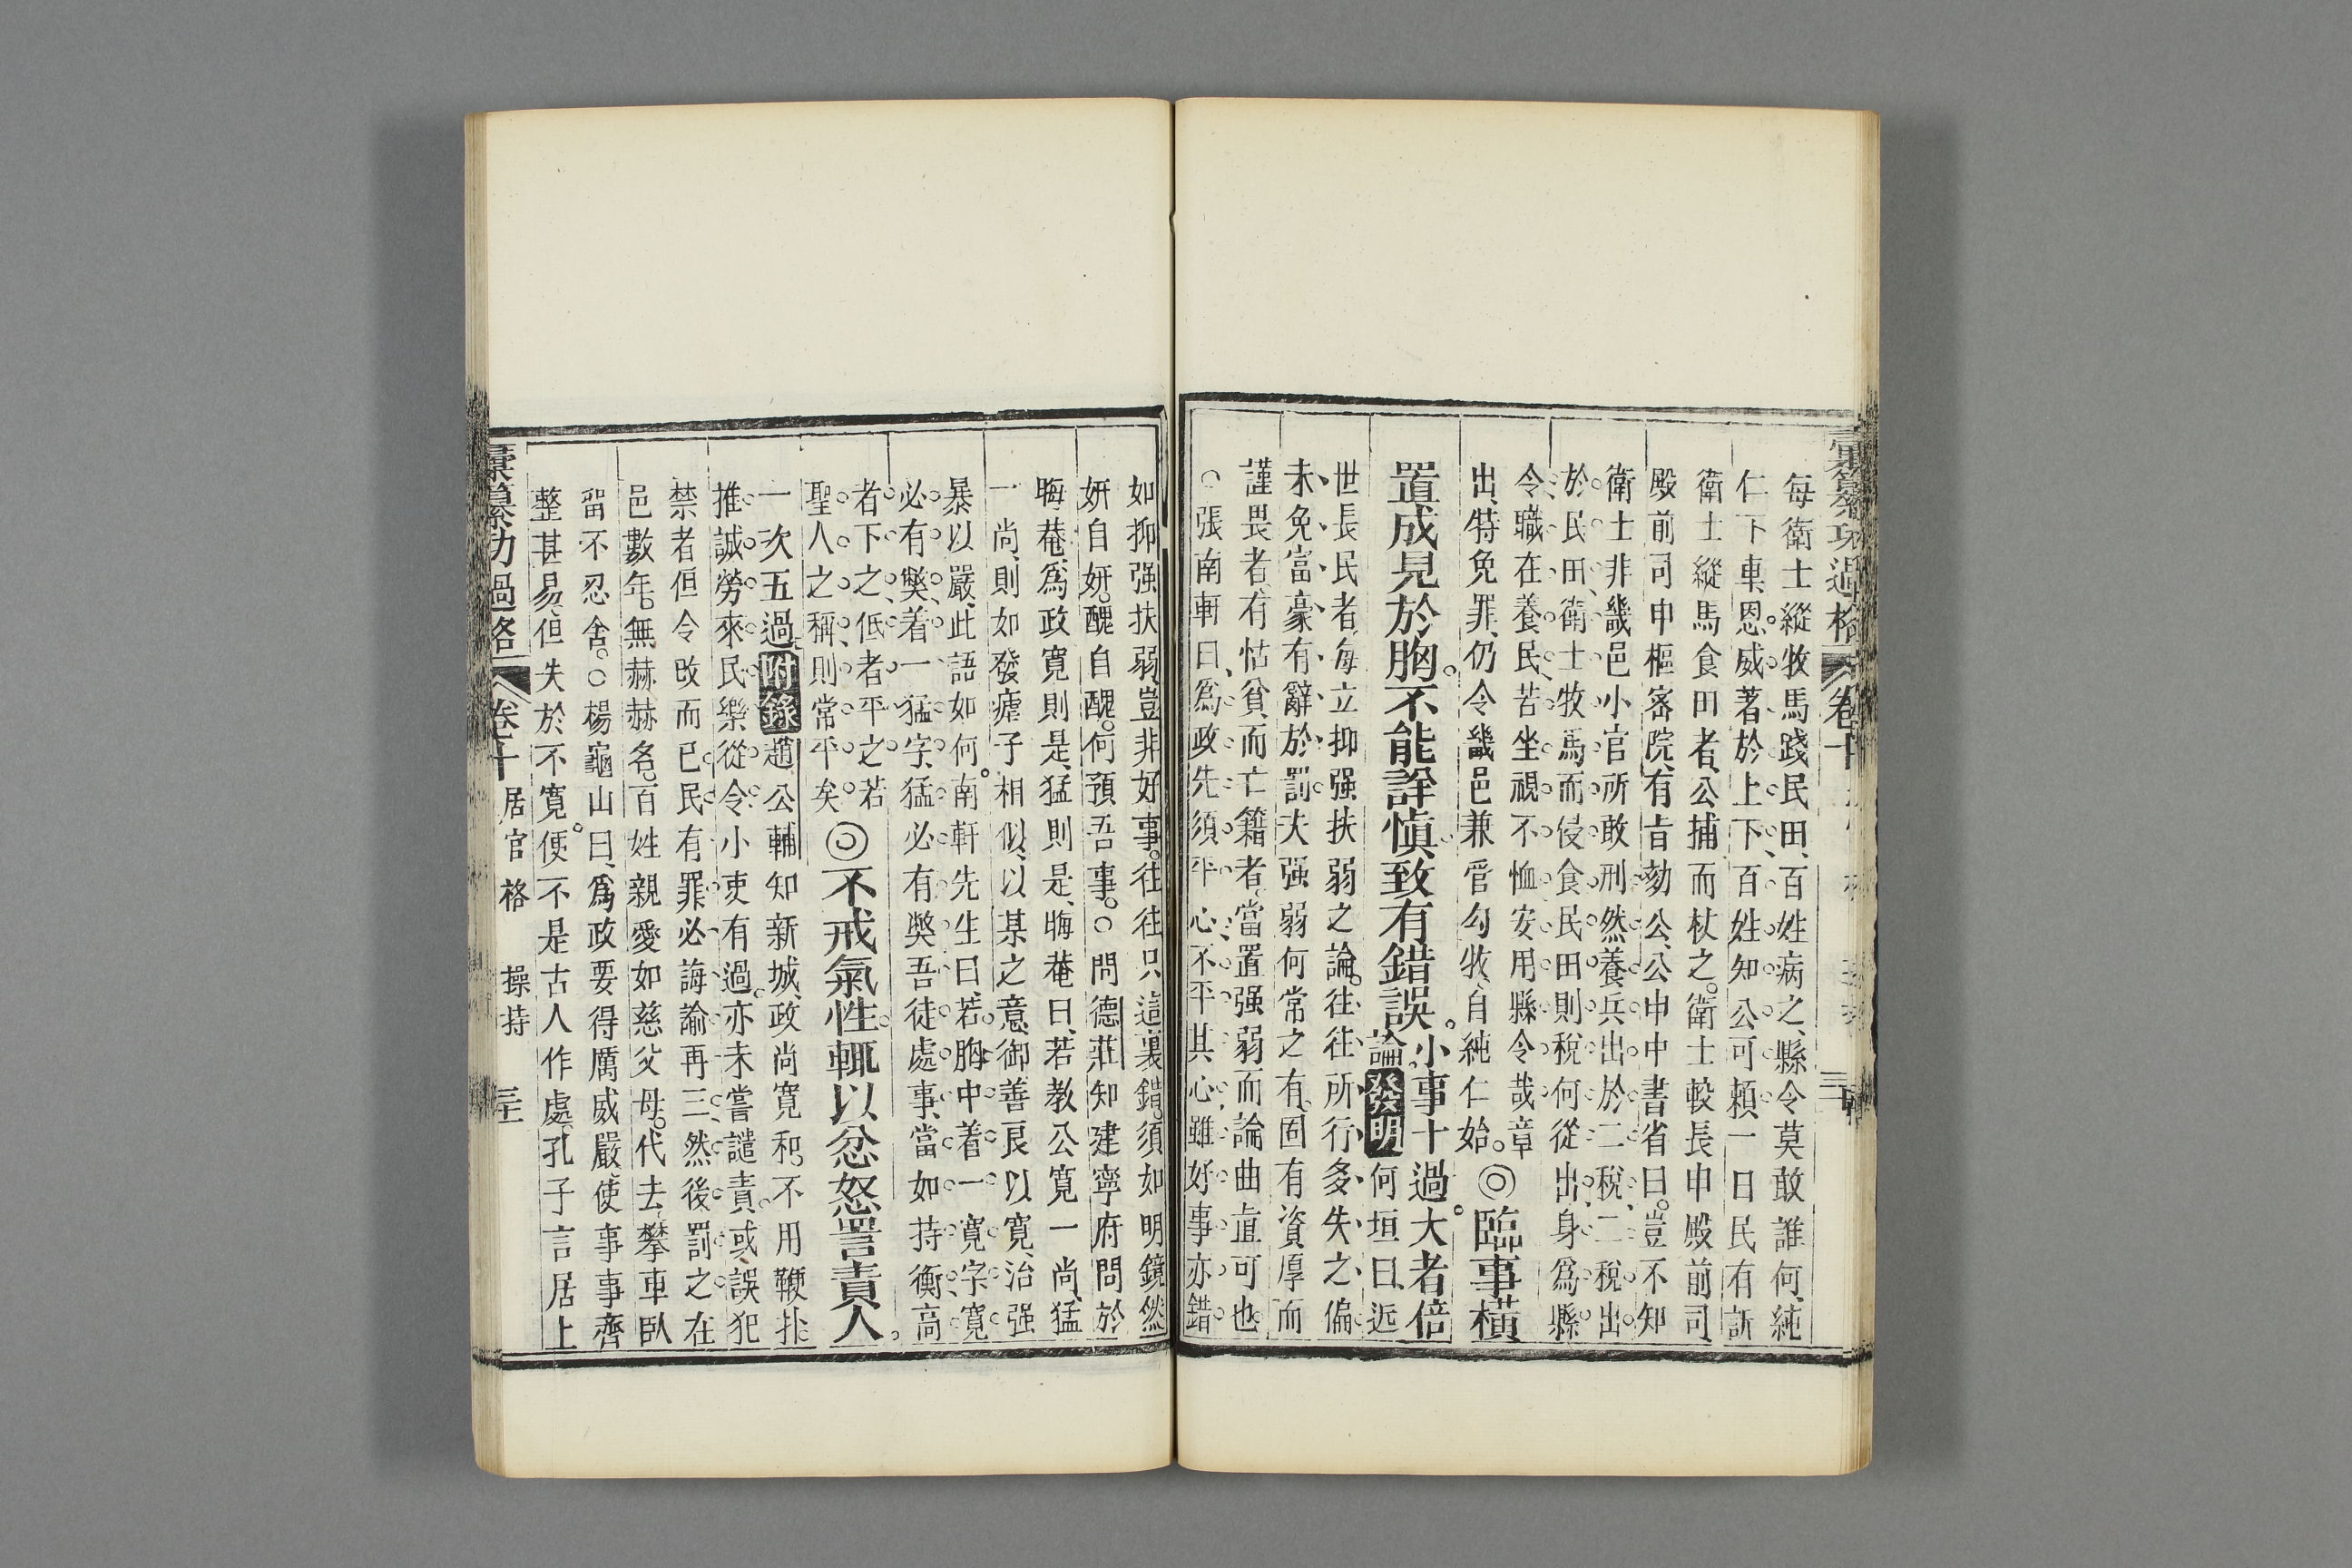 彙纂功過格 卷十
每衛士縱牧馬踐民田、百姓病之、縣令莫敢誰何、純
仁下車。恩威著於上下、百姓知公可賴、一日民有訴
衛士縱馬食田者、公捕而杖之。衛士較長申殿前司
殿前司申樞密院、有旨劾公、公申中書省曰。豈不知
衛士非畿邑小官所敢刑然養兵出於二稅、二稅出
於民田、衛士牧馬而侵食民田則稅何從出、身爲縣
令職在養民、苦坐視不恤安用縣令哉章
出、特免罪、仍令畿邑兼管勾牧、自純仁始。◎臨事橫
置成見於胸。不能詳愼、致有錯誤。小事十過。大者倍
論。發明何垣曰、近
世長民者、每立抑强扶弱之論。往往所行多失之偏
未免富豪有辭於罰夫强弱何常之有。固有資厚而
謹畏者、有怙貧而亡籍者。當置强弱而論曲直可也
○張南軒曰、爲政先須平心不平其心雖好事亦錯
如抑强扶弱豈非好事。往往只這裏錯。須如明鏡然
妍自妍。醜自醜。何預吾事。○問德莊知建寧府問於
晦菴、爲政寬則是、猛則是、晦菴曰、若教公寬一尚、猛
一尚、則如發瘧子相似、以某之意、御善良以寬、治强
暴以嚴、此語如何。南軒先生曰、若胸中着一寬字寬
必有獘、着一猛字、猛必有獘吾徒處事、當如持衡高
者下之、低者平之若
聖人之稱、則常平矣◎不戒氣性。輒以忿怒詈責人。
一次五過、附錄趙公輔知新城、政尚寬和。不用鞭扑
推誠勞來民樂從令小吏有過。亦未嘗譴責或誤犯
禁者但令改而已民有罪必誨諭再三、然後罰之在
邑數年。無赫赫名。百姓親愛如慈父母。代去、攀車臥
畱不忍舍。○楊龜山曰、爲政要得厲威嚴、使事事齊
整甚易、但失於不寬。便不是古人作處、孔子言居上
彙纂功過格 卷十 居官格 操持 三十